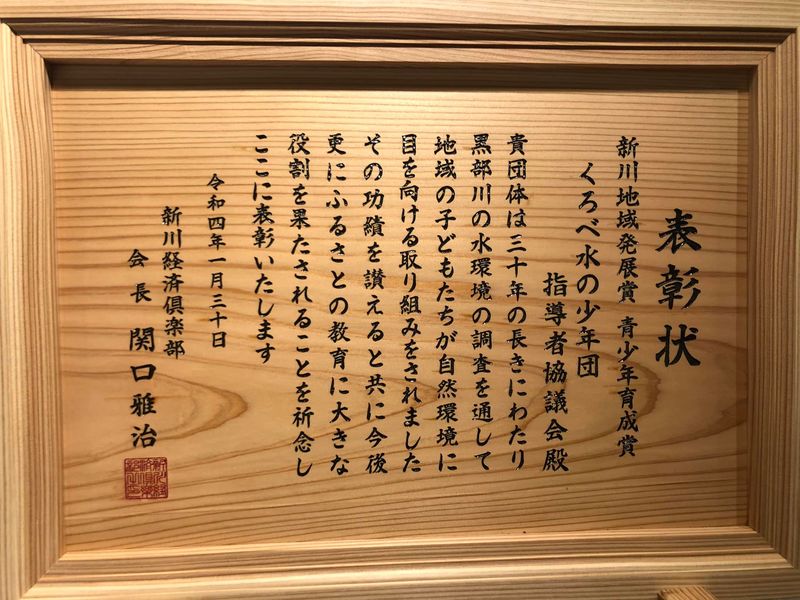 表彰状
新川地域発展賞 青少年育成賞
くろべ水の少年団
指導者協議会殿
貴団体は三十年の長きにわたり
黒部川の水環境の調査を通して
地域の子どもたちが自然環境に
目を向ける取り組みをされました
その功績を讃えると共に今後
更にふるさとの教育に大きな
役割を果たされることを祈念し
ここに表彰いたします
令和四年一月三十日
新川経済倶楽部
会長 関口雅治